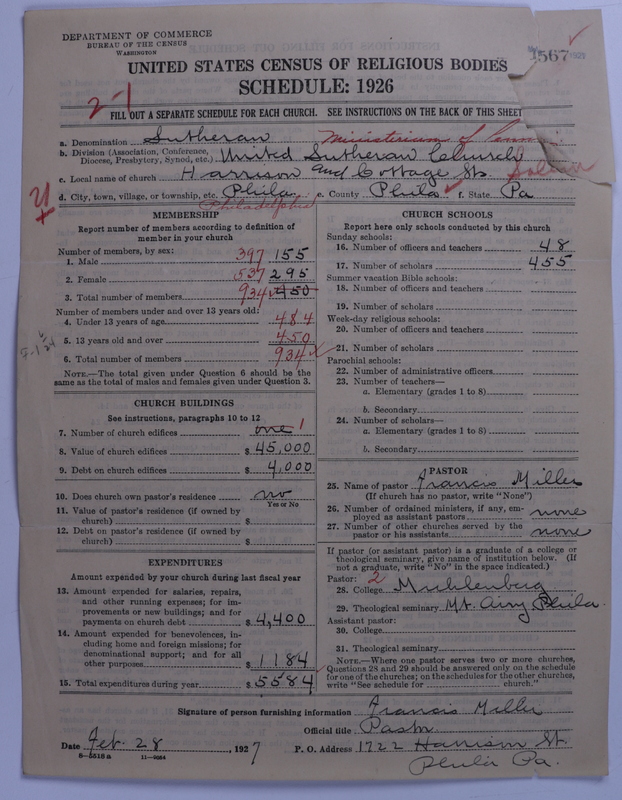 DEPARTMENT OF COMMERCE
BUREAU OF THE CENSUS
WASHINGTON
1567
1929
UNITED STATES CENSUS OF RELIGIOUS BODIES
SCHEDULE: 1926
2-1
FILL OUT A SEPARATE SCHEDULE FOR EACH CHURCH. SEE INSTRUCTIONS ON THE BACK OF THIS SHEET
a. Denomination Lutheran Ministerium of Penn
b. Division (Association, Conference, Diocese, Presbytery, Synod, etc.) United Lutheran Church
c. Local name of church Harrison and Cottage Sts. Salem
d. City, town, village, or township, etc. Phila. e. County Phila f. State Pa
Philadelphia
MEMBERSHIP
Report number of members according to definition of
member in your church
Number of members, by sex:
1. Male 397 155
2. Female 537 295
3. Total number of members 934 450
Number of members under and over 13 years old:
4. Under 13 years of age 484
5. 13 years old and over 450
6. Total number of members 934
NOTE.—The total given under Question 6 should be the
same as the total of males and females given under Question 3.
CHURCH BUILDINGS
See instructions, paragraphs 10 to 12
7. Number of church edifices one 1
8. Value of church edifices $ 45,000
9. Debt on church edifices $ 4,000
10. Does church own pastor's residence no
Yes or No
11. Value of pastor's residence (if owned by
church) $
12. Debt on pastor's residence (if owned by
church) $
EXPENDITURES
Amount expended by your church during last fiscal year
13. Amount expended for salaries, repairs,
and other running expenses; for im-
provements or new buildings; and for
payments on church debt $ 4,400
14. Amount expended for benevolences, in-
cluding home and foreign missions; for
denominational support; and for all
other purposes $ 1184
15. Total expenditures during year $ 5584
CHURCH SCHOOLS
Report here only schools conducted by this church
Sunday schools:
16. Number of officers and teachers 48
17. Number of scholars 455
Summer vacation Bible schools:
18. Number of officers and teachers
19. Number of scholars
Week-day religious schools:
20. Number of officers and teachers
21. Number of scholars
Parochial schools:
22. Number of administrative officers
23. Number of teachers—
a. Elementary (grades 1 to 8)
b. Secondary
24. Number of scholars—
a. Elementary (grades 1 to 8)
b. Secondary
PASTOR
25. Name of pastor Francis Miller
(If church has no pastor, write "None")
26. Number of ordained ministers, if any, em-
ployed as assistant pastors none
27. Number of other churches served by the
pastor or his assistants none
If pastor (or assistant pastor) is a graduate of a college or
theological seminary, give name of institution below. (If
not a graduate, write "No" in the space indicated.)
Pastor: 2
28. College Muhlenberg
29. Theological seminary Mt. Airy Phila.
Assistant pastor:
30. College
31. Theological seminary
NOTE.—Where one pastor serves two or more churches,
Questions 28 and 29 should be answered only on the schedule
for one of the churches; on the schedules for the other churches,
write "See schedule for church."
Signature of person furnishing information Francis Miller
Official title Pastor
Date Feb. 28, 1927 P. O. Address 1722 Harrison St.
8—5518a 11—9054
Phila Pa.